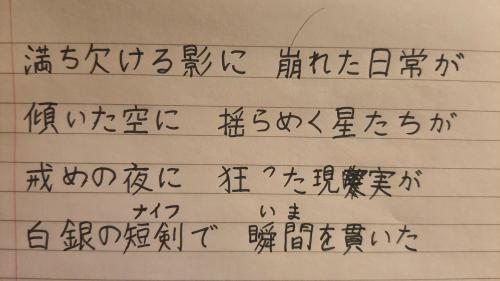 満ち欠ける影に 崩れた日常が
傾いた空に 揺らめく星たちが
戒めの夜に 狂った現実が
ナイフ いま
白銀の短剣で 瞬間を貫いた